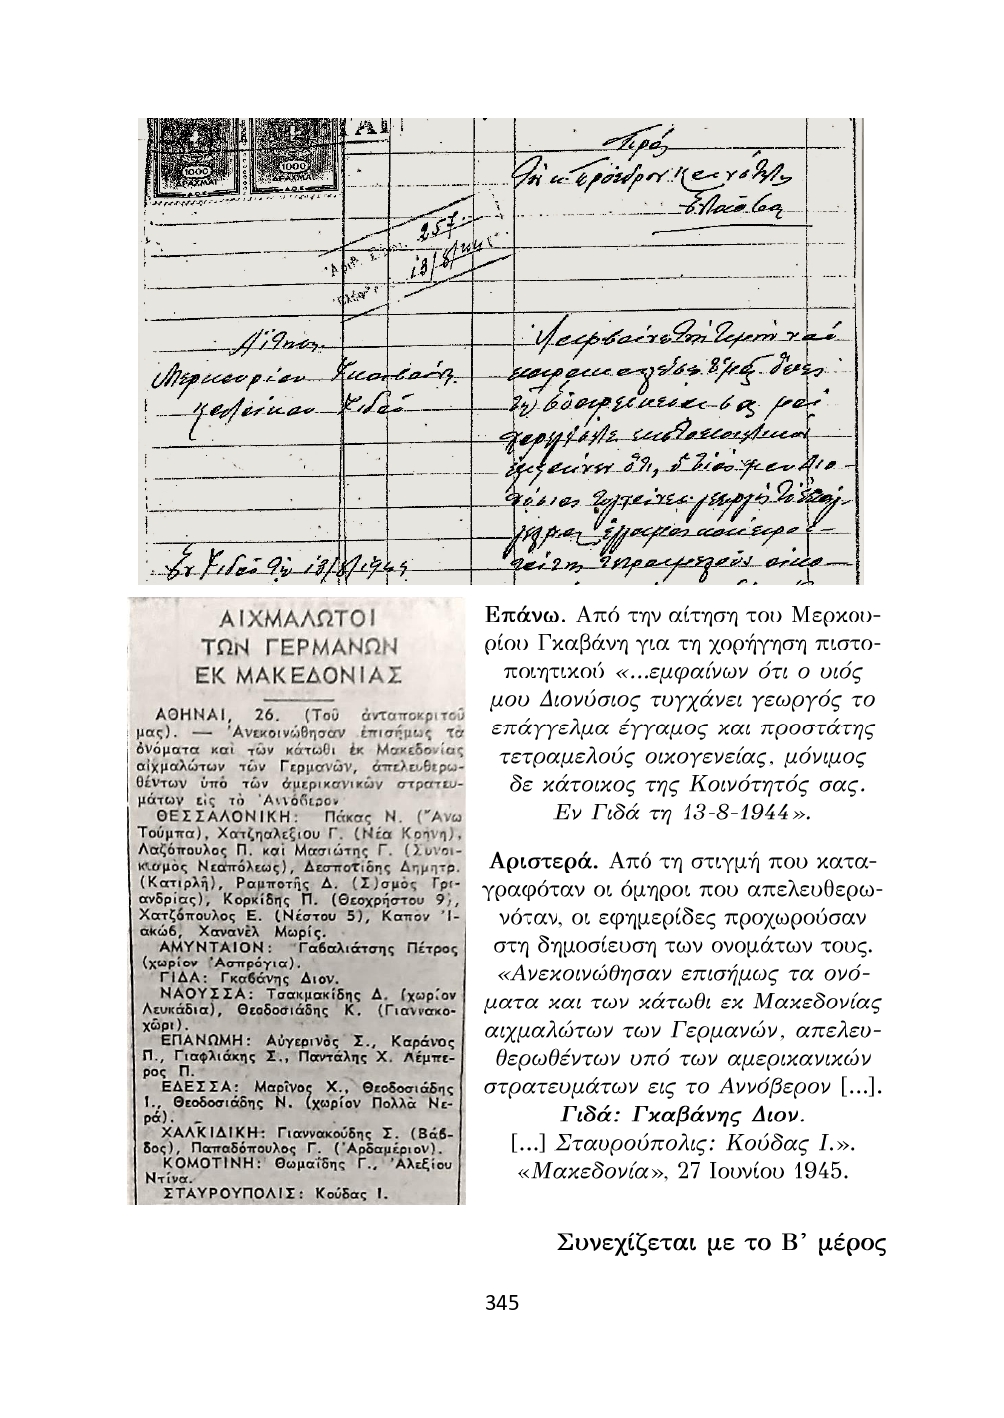 1000
ΔΡΑΧΜΑΙ
1000
ΔΡΑΧΜΑΙ
Πρός
Τὸν κ. Πρόεδρον Κοινότητος
257
13/8/44
Αἴτησις
Μερκουρίου Γκαβάνη
κατοίκου Γιδᾶ
Λαμβάνω τὴν τιμὴν νὰ
παρακαλέσω ὑμᾶς ὅπως
μοὶ
χορηγήσητε πιστοποιητικὸν
ἐμφαῖνον ὅτι, ὁ υἱός μου Διο-
νύσιος τυγχάνει γεωργὸς τὸ ἐπάγ-
γελμα ἔγγαμος καὶ προσ-
τάτης τετραμελοῦς οἰκο-
Ἐν Γιδᾷ τῇ 13/8/1944
ΑΙΧΜΑΛΩΤΟΙ
ΤΩΝ ΓΕΡΜΑΝΩΝ
ΕΚ ΜΑΚΕΔΟΝΙΑΣ
ΑΘΗΝΑΙ, 26. (Τοῦ ἀνταποκριτοῦ
μας). — Ἀνεκοινώθησαν ἐπισήμως τὰ
ὀνόματα καὶ τῶν κάτωθι ἐκ Μακεδονίας
αἰχμαλώτων τῶν Γερμανῶν, ἀπελευθερω-
θέντων ὑπὸ τῶν ἀμερικανικῶν στρατευ-
μάτων εἰς τὸ Ἀννόβερον
ΘΕΣΣΑΛΟΝΙΚΗ: Πάκας Ν. (Ἄνω
Τούμπα), Χατζηαλεξίου Γ. (Νέα Κρήνη),
Λαζόπουλος Π. καὶ Μασιώτης Γ. (Συνοι-
κισμὸς Νεαπόλεως), Δεσποτίδης Δημητρ.
(Κατιρλῆ), Ραμποτῆς Δ. (Σ)σμὸς Τρι-
ανδρίας), Κορκίδης Π. (Θεοχρήστου 9),
Χατζόπουλος Ε. (Νέστου 5), Καπον Ἰ-
ακώβ, Χανανὲλ Μωρίς.
ΑΜΥΝΤΑΙΟΝ: Γαβαλιάτσης Πέτρος
(χωρίον Ἀσπρόγια).
ΓΙΔΑ: Γκαβάνης Διον.
ΝΑΟΥΣΣΑ: Τσακμακίδης Δ. (χωρίον
Λευκάδια), Θεοδοσιάδης Κ. (Γιαννακο-
χῶρι).
ΕΠΑΝΩΜΗ: Αὐγερινὸς Σ., Καράνος
Π., Γιαφλιάκης Σ., Παντάλης Χ. Λέμπε-
ρος Π.
ΕΔΕΣΣΑ: Μαρῖνος Χ., Θεοδοσιάδης
Ι., Θεοδοσιάδης Ν. (χωρίον Πολλὰ Νε-
ρά).
ΧΑΛΚΙΔΙΚΗ: Γιαννακούδης Σ. (Βάβ-
δος), Παπαδόπουλος Γ. (Ἀρδαμέριον).
ΚΟΜΟΤΙΝΗ: Θωμαΐδης Γ., Ἀλεξίου
Ντίνα.
ΣΤΑΥΡΟΥΠΟΛΙΣ: Κούδας Ι.
Επάνω. Από την αίτηση του Μερκου-
ρίου Γκαβάνη για τη χορήγηση πιστο-
ποιητικού «...εμφαίνων ότι ο υιός
μου Διονύσιος τυγχάνει γεωργός το
επάγγελμα έγγαμος και προστάτης
τετραμελούς οικογενείας, μόνιμος
δε κάτοικος της Κοινότητός σας.
Εν Γιδά τη 13-8-1944».
Αριστερά. Από τη στιγμή που κατα-
γραφόταν οι όμηροι που απελευθερω-
νόταν, οι εφημερίδες προχωρούσαν
στη δημοσίευση των ονομάτων τους.
«Ανεκοινώθησαν επισήμως τα ονό-
ματα και των κάτωθι εκ Μακεδονίας
αιχμαλώτων των Γερμανών, απελευ-
θερωθέντων υπό των αμερικανικών
στρατευμάτων εις το Αννόβερον [...].
Γιδά: Γκαβάνης Διον.
[...] Σταυρούπολις: Κούδας Ι.».
«Μακεδονία», 27 Ιουνίου 1945.
Συνεχίζεται με το Β’ μέρος
345